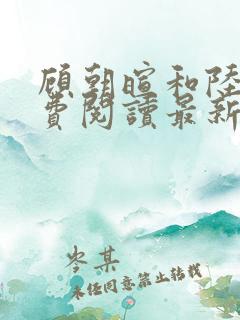 顾朝暄和陸
費閱讀最新
岑某
未经同意禁止转载